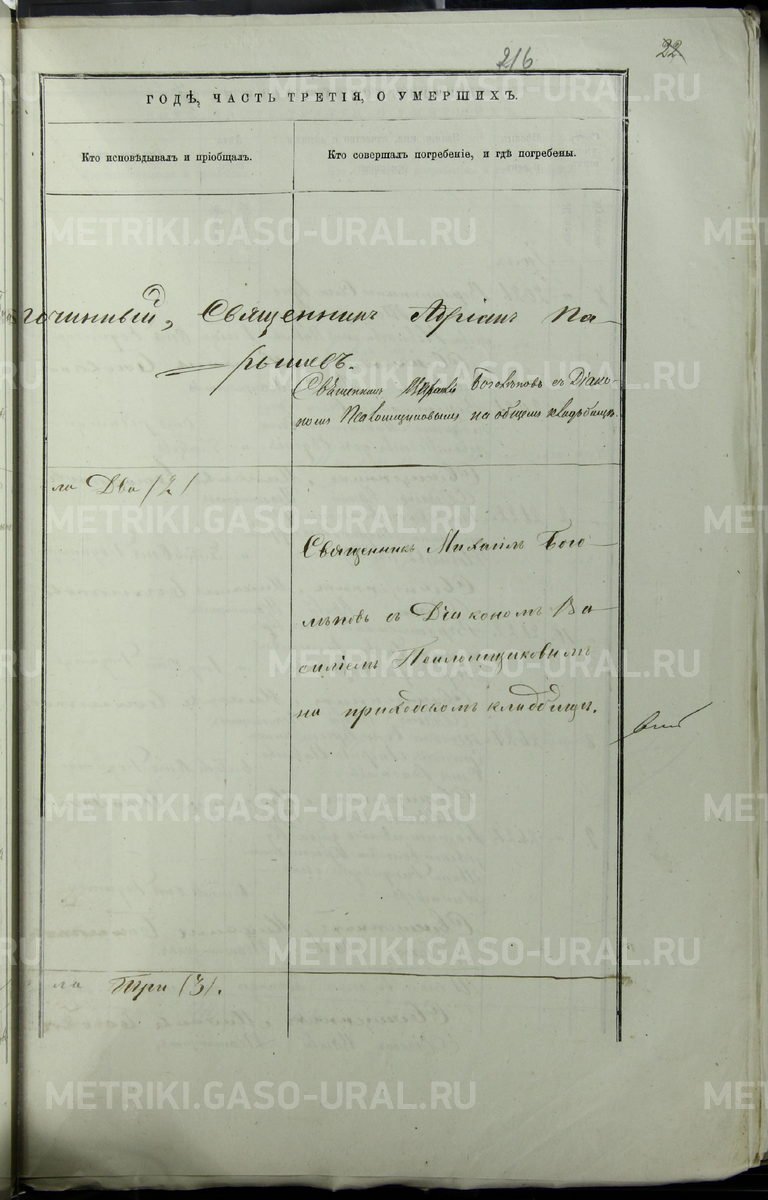 216
22
ГОДѢ, ЧАСТЬ ТРЕТІЯ, О УМЕРШИХЪ.
Кто исповѣдывалъ и пріобщалъ.
Кто совершалъ погребеніе, и гдѣ погребены.
гочинный, Священникъ Адріанъ Па-
рышевъ.
Священникъ Боголѣповъ съ Діако-
номъ на общемъ кладбищѣ.
ла Два /2/
Священникъ Михаилъ Бого-
лѣповъ съ Діакономъ Ва-
силіемъ
на приходскомъ кладбищѣ.
ла Три /3/.
METRIKI.GASO-URAL.RU